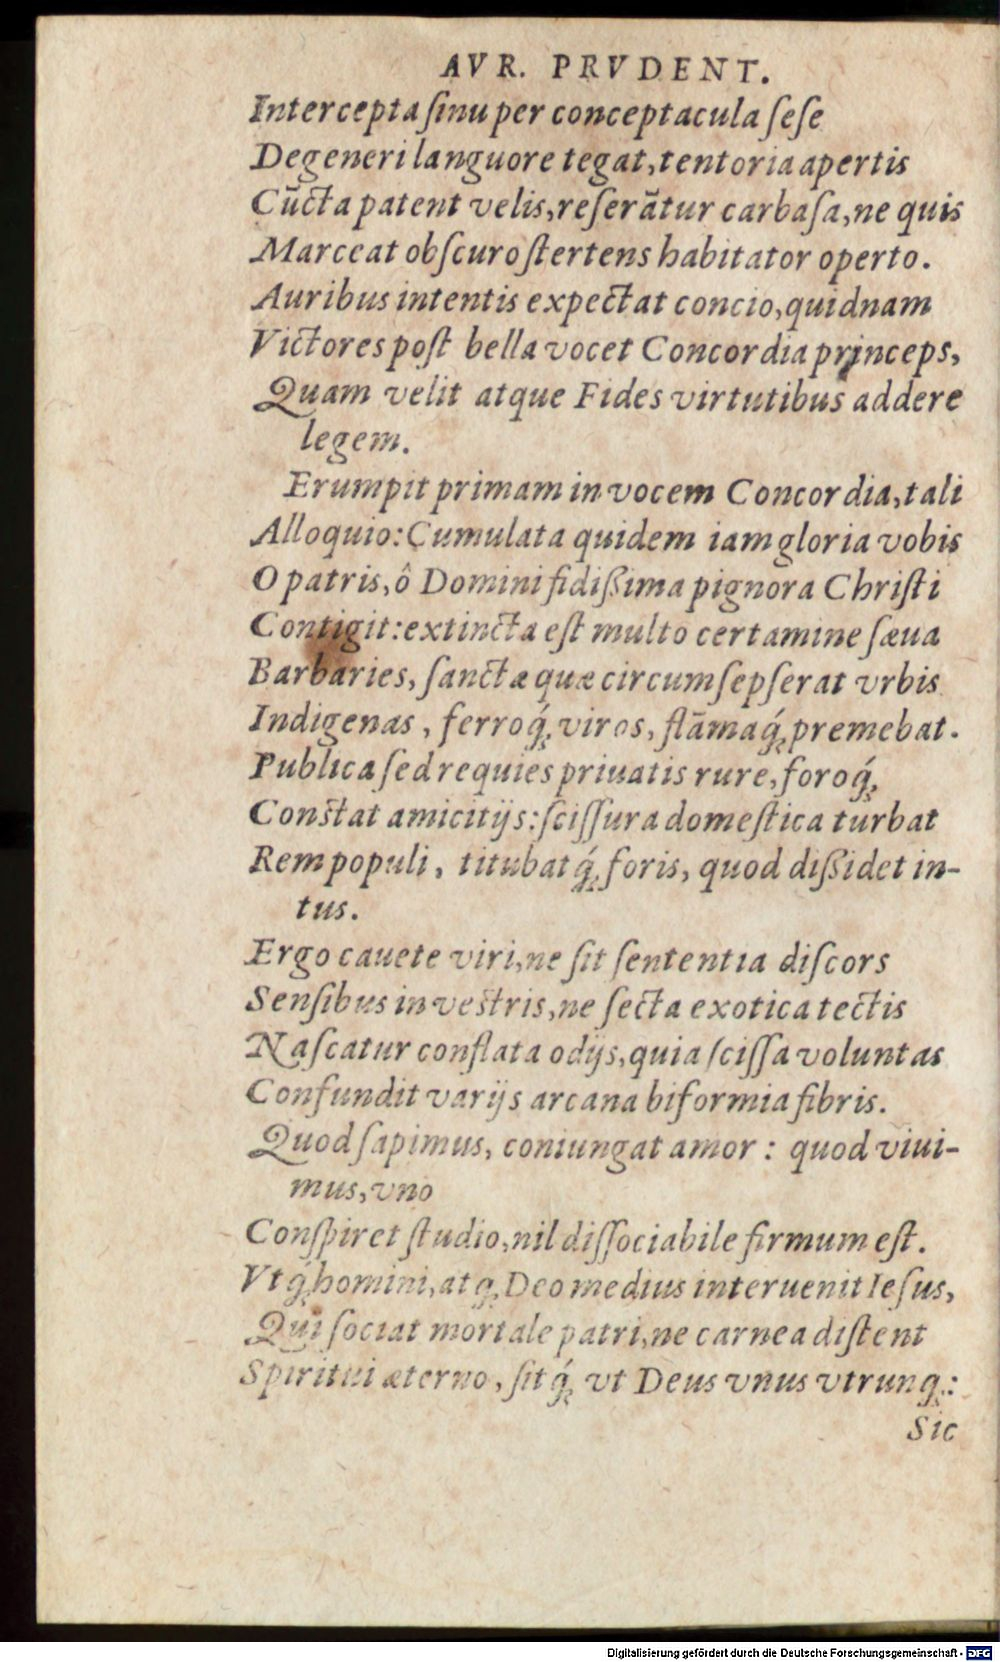 AVR. PRVDENT.
Intercepta ſinu per conceptacula ſeſe
Degeneri languore tegat, tentoria apertis
Cũcta patent velis, reſerãtur carbaſa, ne quis
Marceat obſcuro ſtertens habitator operto.
Auribus intentis expectat concio, quidnam
Victores poſt bella vocet Concordia princeps,
Quam velit atque Fides virtutibus addere
legem.
Erumpit primam in vocem Concordia, tali
Alloquio: Cumulata quidem iam gloria vobis
O patris, ô Domini fidißima pignora Chriſti
Contigit: extincta eſt multo certamine ſæua
Barbaries, ſanctæ quæ circumſepſerat vrbis
Indigenas, ferroq́; viros, flãmaq́; premebat.
Publica ſed requies priuatis rure, foroq́;
Conſtat amicitijs: ſciſſura domeſtica turbat
Rem populi, titubatq́; foris, quod dißidet in-
tus.
Ergo cauete viri, ne ſit ſententia diſcors
Senſibus in veſtris, ne ſecta exotica tectis
Naſcatur conflata odijs, quia ſciſſa voluntas
Confundit varijs arcana biformia fibris.
Quod ſapimus, coniungat amor: quod viui-
mus, vno
Conſpiret ſtudio, nil diſſociabile firmum eſt.
Vtq́; homini, atq; Deo medius interuenit Ieſus,
Qui ſociat mortale patri, ne carnea diſtent
Spiritui æterno, ſitq́; vt Deus vnus vtrunq;:
Sic
Digitalisierung gefördert durch die Deutsche Forschungsgemeinschaft - DFG